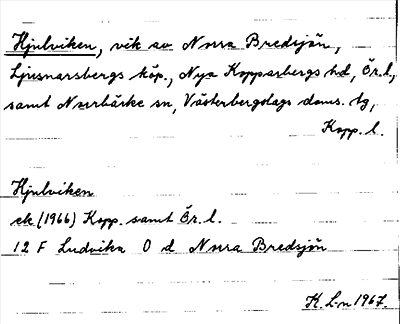 Hjulviken, vik av Norra Bredsjön,
Ljusnarsbergs köp., Nya Kopparbergs hd, Ör.l,
samt Norrbärke sn, Västerbergslags doms. tg,
Kopp. l.
Hjulviken
ek (1966) Kopp. samt Ör. l.
12 F Ludvika O d Norra Bredsjön
K. L-n 1967.